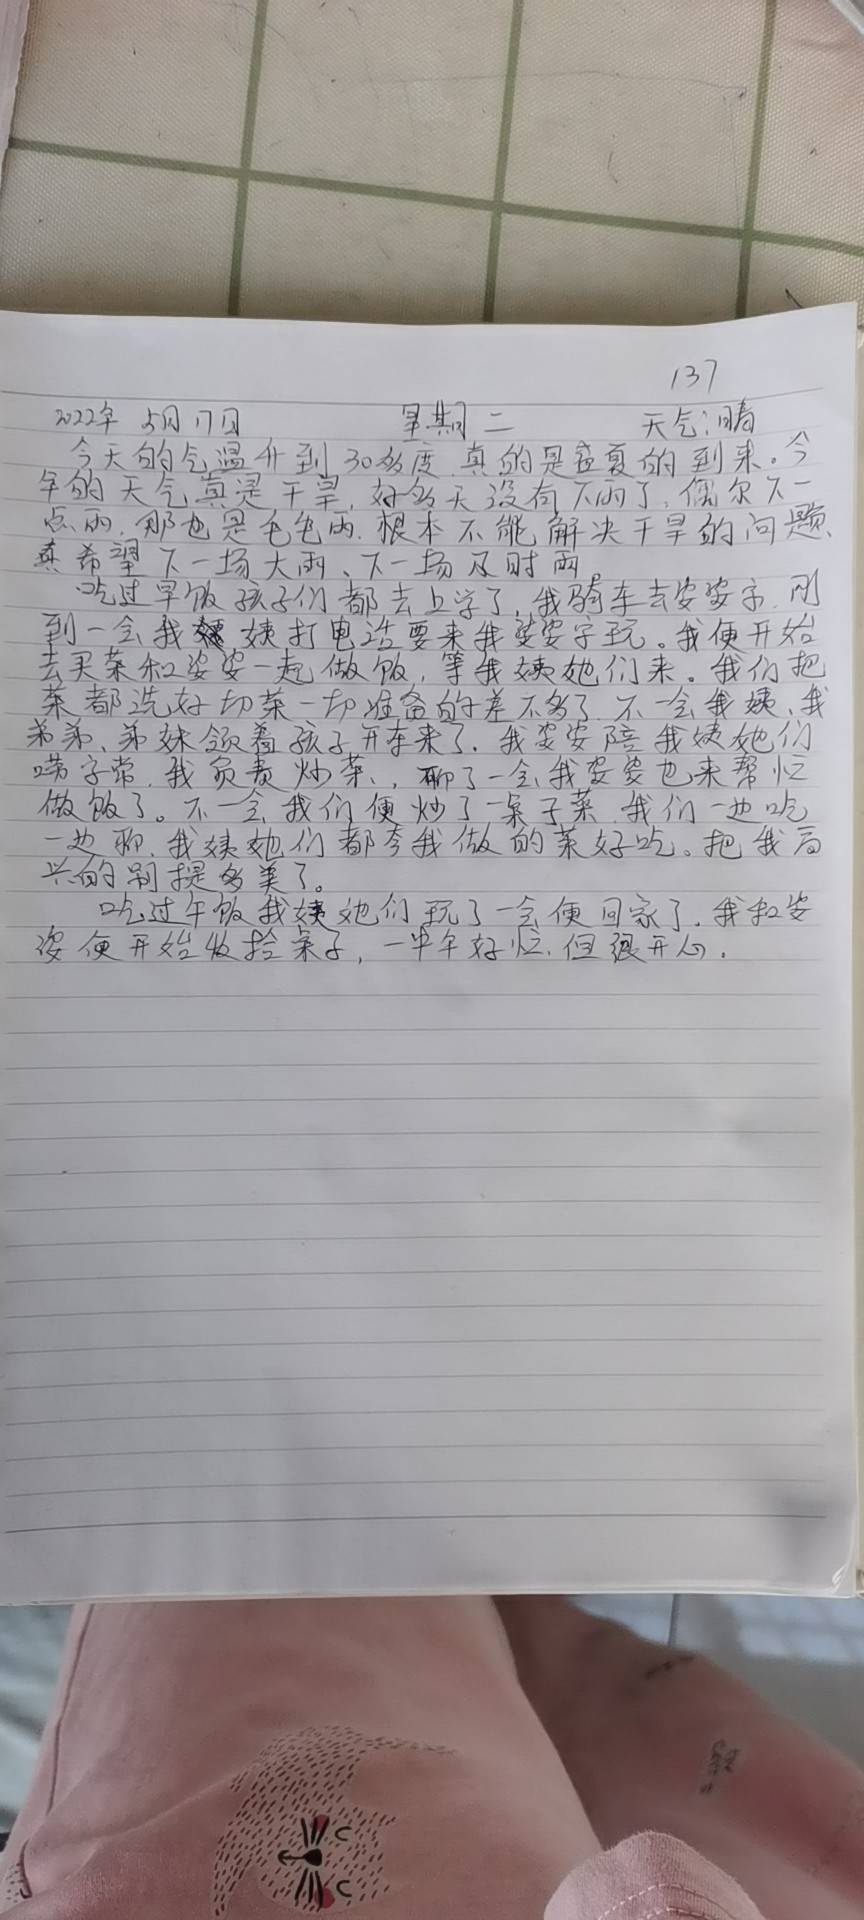 137
2022年 5月17日 星期二 天气:晴
今天的气温升到30多度 真的是盛夏的到来。今
年的天气真是干旱,好多天没有下雨了,偶尔下一
点雨,那也是毛毛雨.根本不能解决干旱的问题、
真希望下一场大雨、下一场及时雨
吃过早饭孩子们都去上学了,我骑车去婆婆家.刚
到一会我姨打电话要来我婆婆家玩。我便开始
去买菜和婆婆一起做饭,等我姨她们来。我们把
菜都洗好切菜一切准备的差不多了.不一会我姨、我
弟弟、弟妹领着孩子开车来了.我婆婆陪我姨她们
唠家常.我负责炒菜,聊了一会我婆婆也来帮忙
做饭了。不一会我们便炒了一桌子菜.我们一边吃
一边聊.我姨她们都夸我做的菜好吃。把我高
兴的别提多美了。
吃过午饭我姨她们玩了一会便回家了.我和婆
婆便开始收拾桌子,一半午好忙.但很开心.